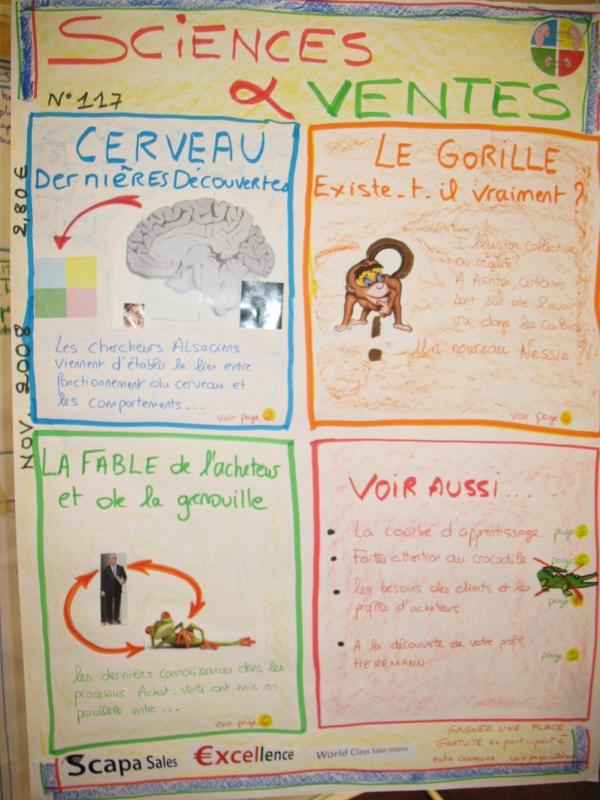 SCIENCES
& VENTES
N° 117
NOV. 2008 2,80 €
CERVEAU
DERNIÈRES DÉCOUVERTES
Les chercheurs Alsaciens
viennent d'établir le lien entre
fonctionnement du cerveau et
les comportements...
voir page
LE GORILLE
Existe-t-il vraiment ?
Illusion collective
ou réalité?
A Ashton, certains
sont sûr de l'avoir
vu dans les
Un nouveau Nessie ?
voir page
LA FABLE de l'acheteur
et de la grenouille
les dernières connaissances dans les
processus Achat-Vente ont mis en
parallèle entre ...
voir page
VOIR AUSSI...
La courbe d'apprentissage page
Faites attention au crocodile page
les besoins des clients et les
profils d'acheteurs. page
A la découverte de votre profil
HERRMANN page
Scapa Sales €xcellence World Class Sales Initiative
GAGNEZ UNE PLACE
GRATUITE en participant à
notre concours voir page